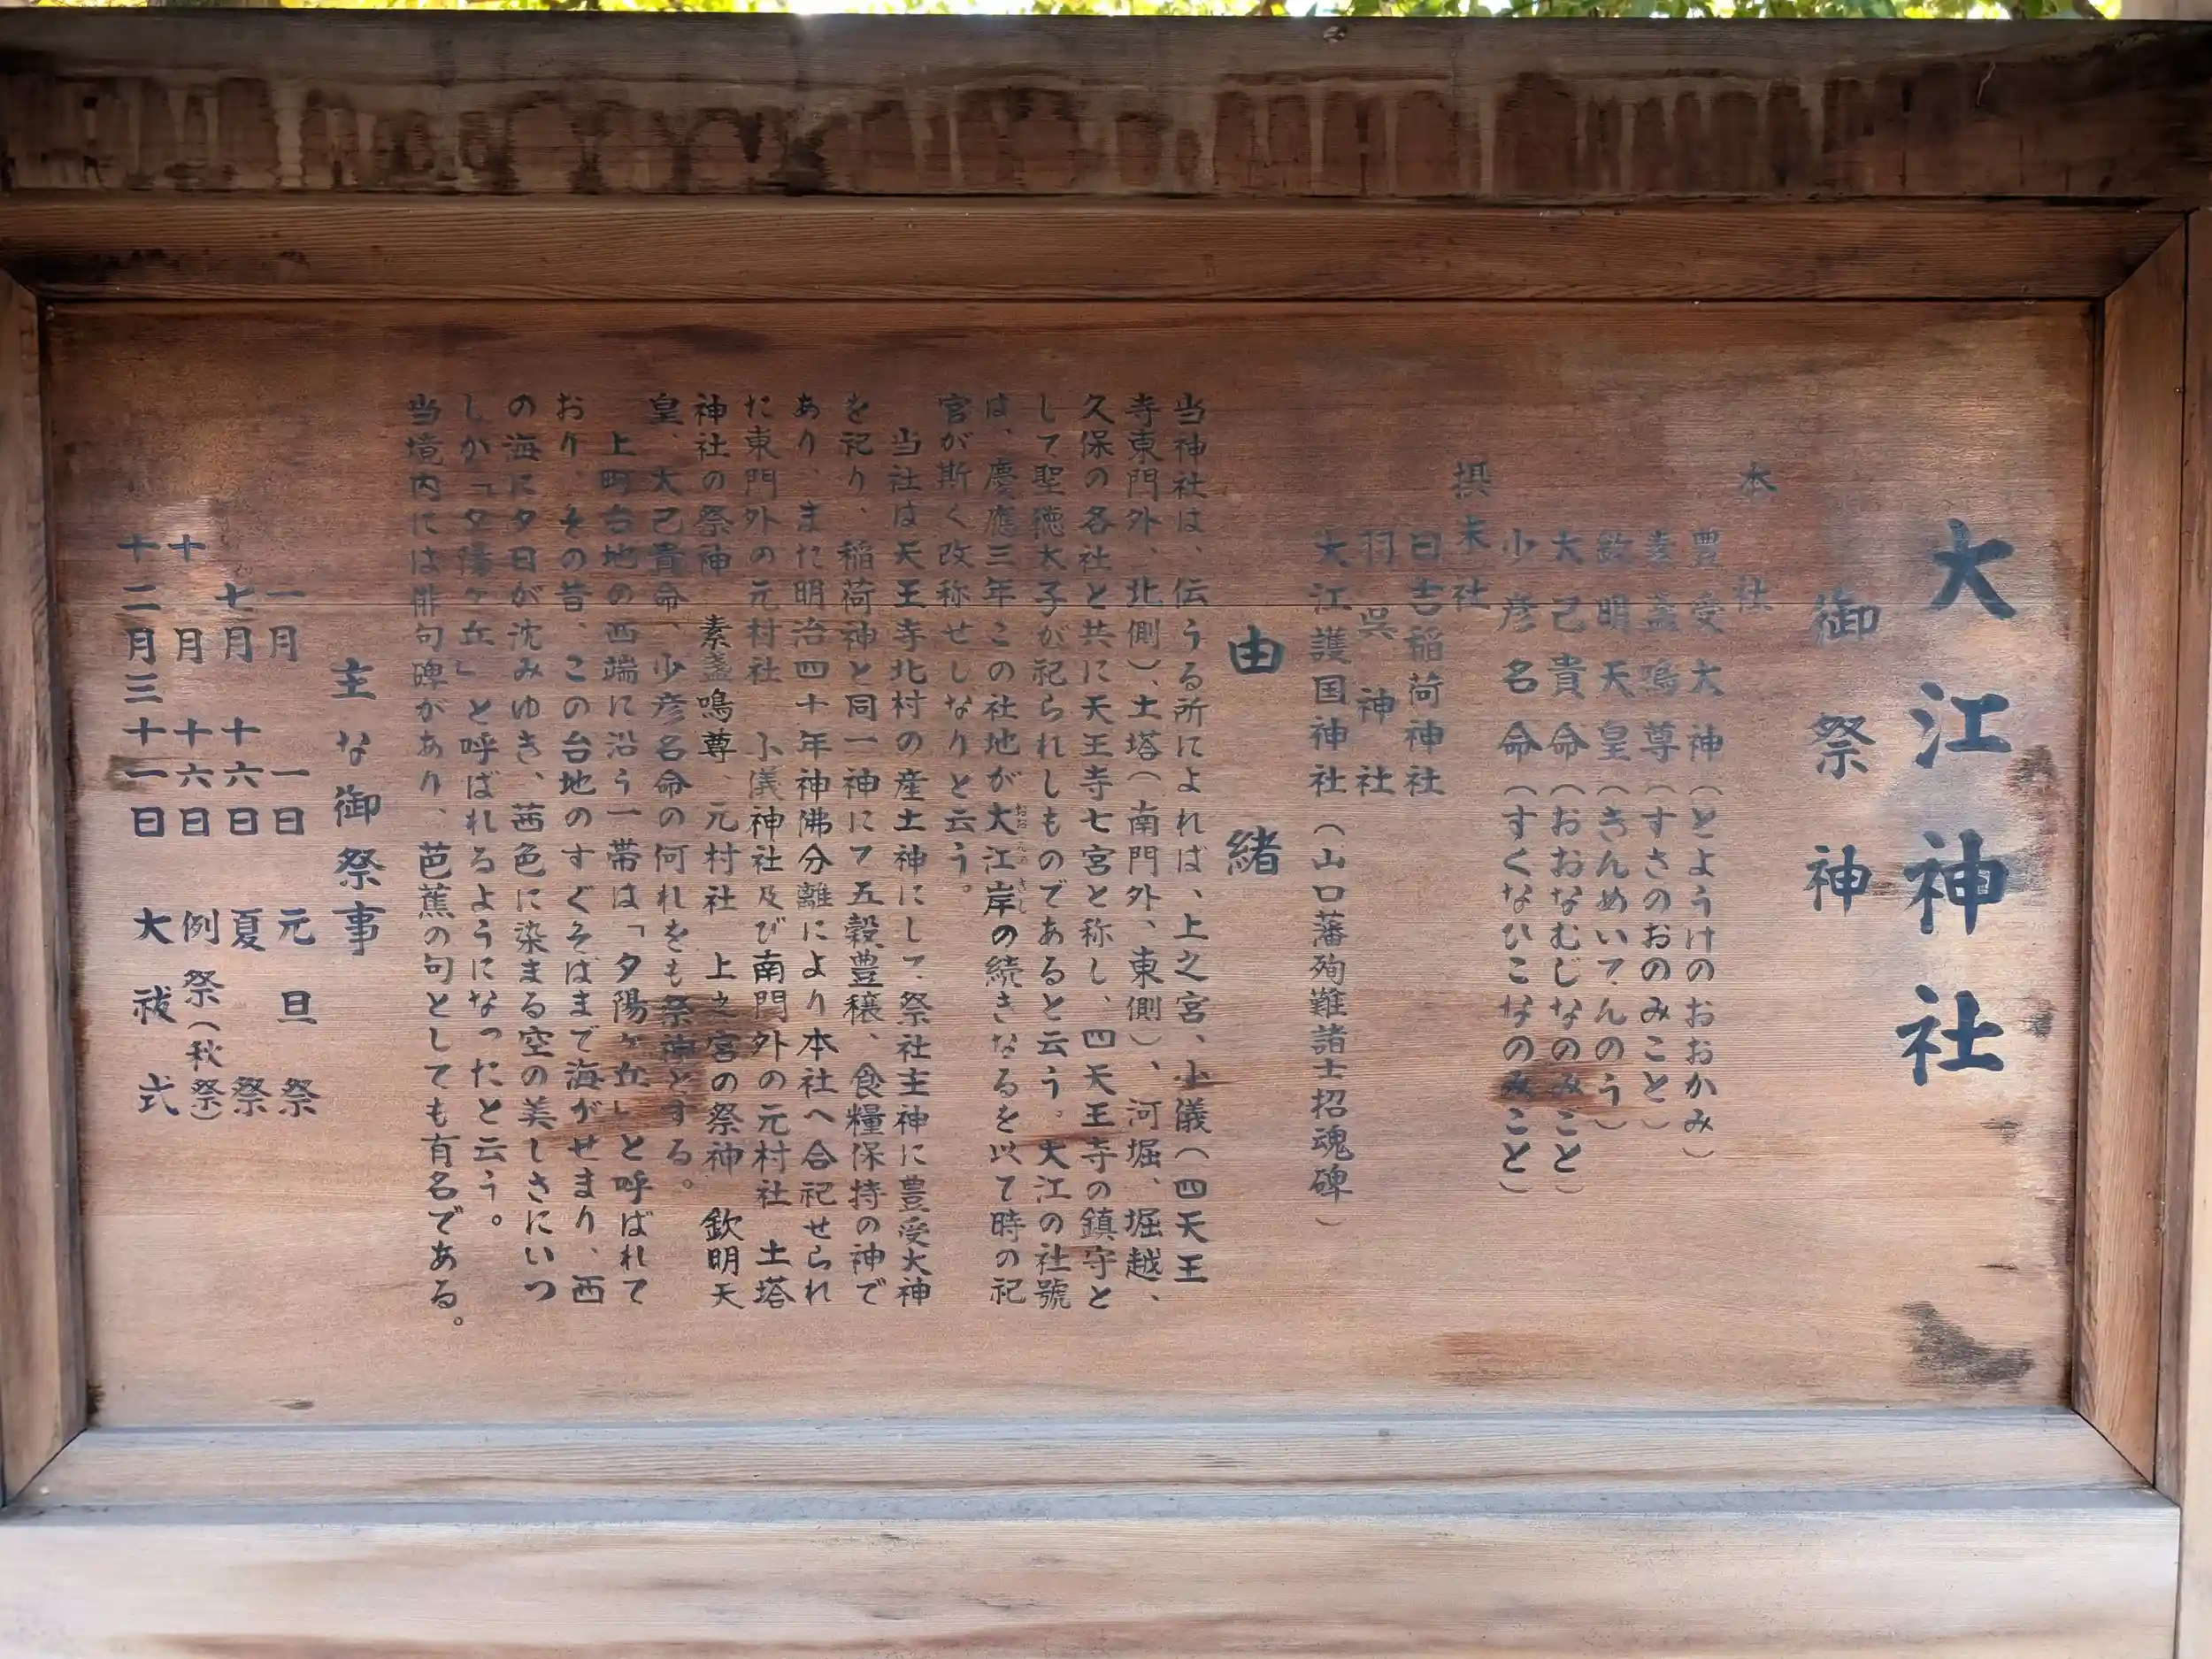 大江神社
御祭神
本社
豊受大神(とようけのおおかみ)
素盞鳴尊(すさのおのみこと)
欽明天皇(きんめいてんのう)
大己貴命(おおなむじなのみこと)
少彦名命(すくなひこなのみこと)
摂末社
日吉稲荷神社
羽呉神社
大江護国神社(山口藩殉難諸士招魂碑)
由緒
当神社は、伝うる所によれば、上之宮、小儀(四天王
寺東門外、北側)、土塔(南門外、東側)、河堀、堀越、
久保の各社と共に天王寺七宮と称し、四天王寺の鎮守と
して聖徳太子が祀られしものであると云う。大江の社號
は、慶應三年この社地が大江岸の続きなるを以て時の祀
おおえの きし
官が斯く改称せしなりと云う。
当社は天王寺北村の産土神にして、祭社主神に豊受大神
を祀り、稲荷神と同一神にて五穀豊穣、食糧保持の神で
あり、また明治四十年神佛分離により本社へ合祀せられ
た東門外の元村社 小儀神社及び南門外の元村社 土塔
神社の祭神 素盞鳴尊、元村社 上之宮の祭神 欽明天
皇、大己貴命、少彦名命の何れをも祭神とする。
上町台地の西端に沿う一帯は「夕陽ヶ丘」と呼ばれて
おり、その昔、この台地のすぐそばまで海がせまり、西
の海に夕日が沈みゆき、茜色に染まる空の美しさにいつ
しか「夕陽ヶ丘」と呼ばれるようになったと云う。
当境内には俳句碑があり、芭蕉の句としても有名である。
主な御祭事
一月 一日 元旦祭
七月 十六日 夏祭
十月 十六日 例祭(秋祭)
十二月三十一日 大祓式